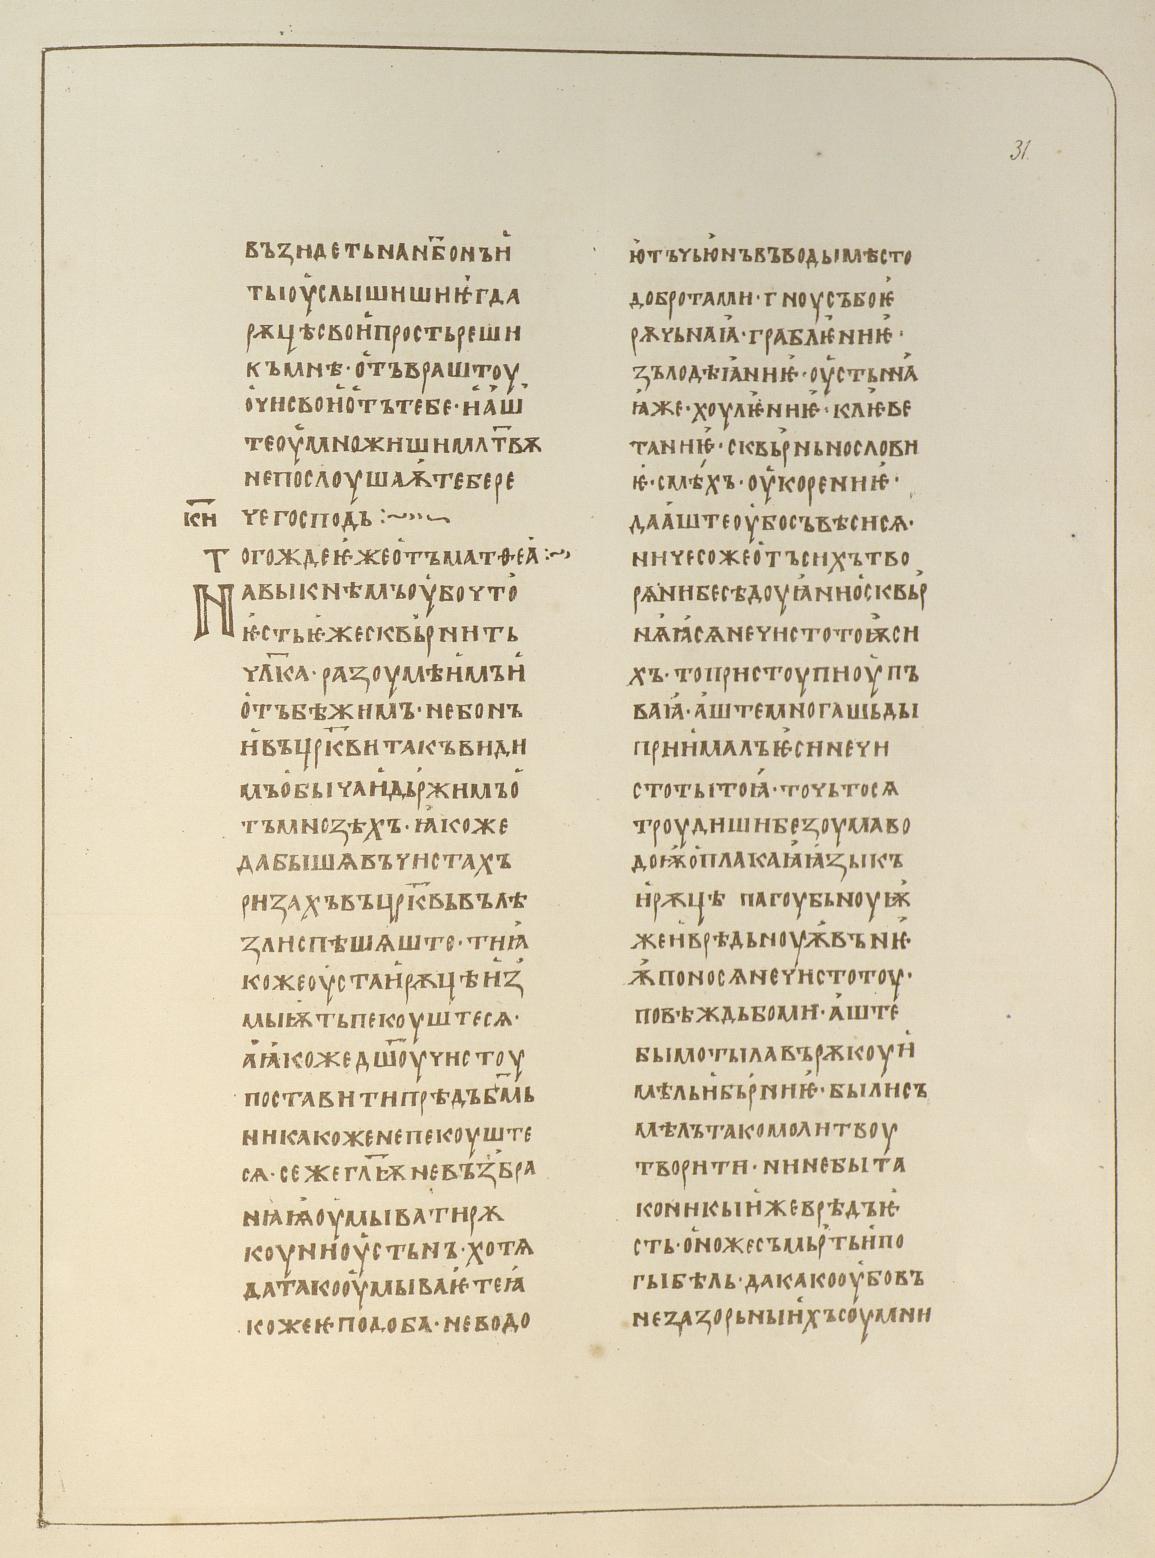 31.
въꙁидетьнанб҃онъи
тыоуслышишиѥгда
рѫцѣсвоипростьреши
къмнѣ·отъвраштоу
очисвоиотътебе·иаш
теоумножишимлт҃вѫ
непослоушаѭтебере
к҃и чегосподь :~
Тогождеѥжеотъматѳеа :~
Навыкнѣмъоубочто
ѥстьѥжесквьрнить
чл҃ка·раꙁоумѣимъи
отъбѣжимъ·небонъ
ивъцр҃квитакъвиди
мъобычаидьржимъо
тъмноꙁѣхъ·ꙗкоже
дабышѧвъчистахъ
риꙁахъвъцр҃квьвълѣ
ꙁлиспѣшѧште·тиꙗ
кожеоустаирѫцѣиꙁ
мыѭтьпекоуштесѧ·
аꙗкожедш҃оучистоу
поставитипрѣдъб҃мь
никакоженепекоуште
сѧ·сежегл҃ѭневъꙁбра
нꙗꙗоумыватирѫ
коуниоустьнъ·хотѧ
датакооумываѥтеꙗ
кожеѥподоба·неводо
ютъчьюнъвъводымѣсто
добротами·гноусъбоѥ
рѫчьнаꙗ·граблѥниѥ·
ꙁълодѣꙗниѥ·оустьна
ꙗже·хоулѥниѥ·клѥве
таниѥ·сквьрньнослови
ѥ·смѣхъ·оукорениѥ·
дааштеоубосъвѣсисѧ·
ничесожеотъсихътво
рѧнибесѣдоуꙗниосквьр
нѧꙗсѧнечистотоѭси
хъ·топристоупиоупъ
ваꙗ·аштемногашьды
прииималъѥсинечи
стотытоꙗ·точьтосѧ
троудишибеꙁоумаво
доѭоплакаꙗꙗꙁыкъ
ирѫцѣ пагоубьноуѭ
жеиврѣдьноуѭвънѥ
ѭпоносѧнечистотоу·
повѣждьбоми·аште
бымотылавърѫкоуи
мѣльибьрниѥ·былисъ
мѣлътакомолитвоу
творити·нинебыта
коникыижеврѣдъѥ
сть·оножесъмьртьипо
гыбѣль·дакакооубовъ
неꙁаꙁорьныихъсоумни